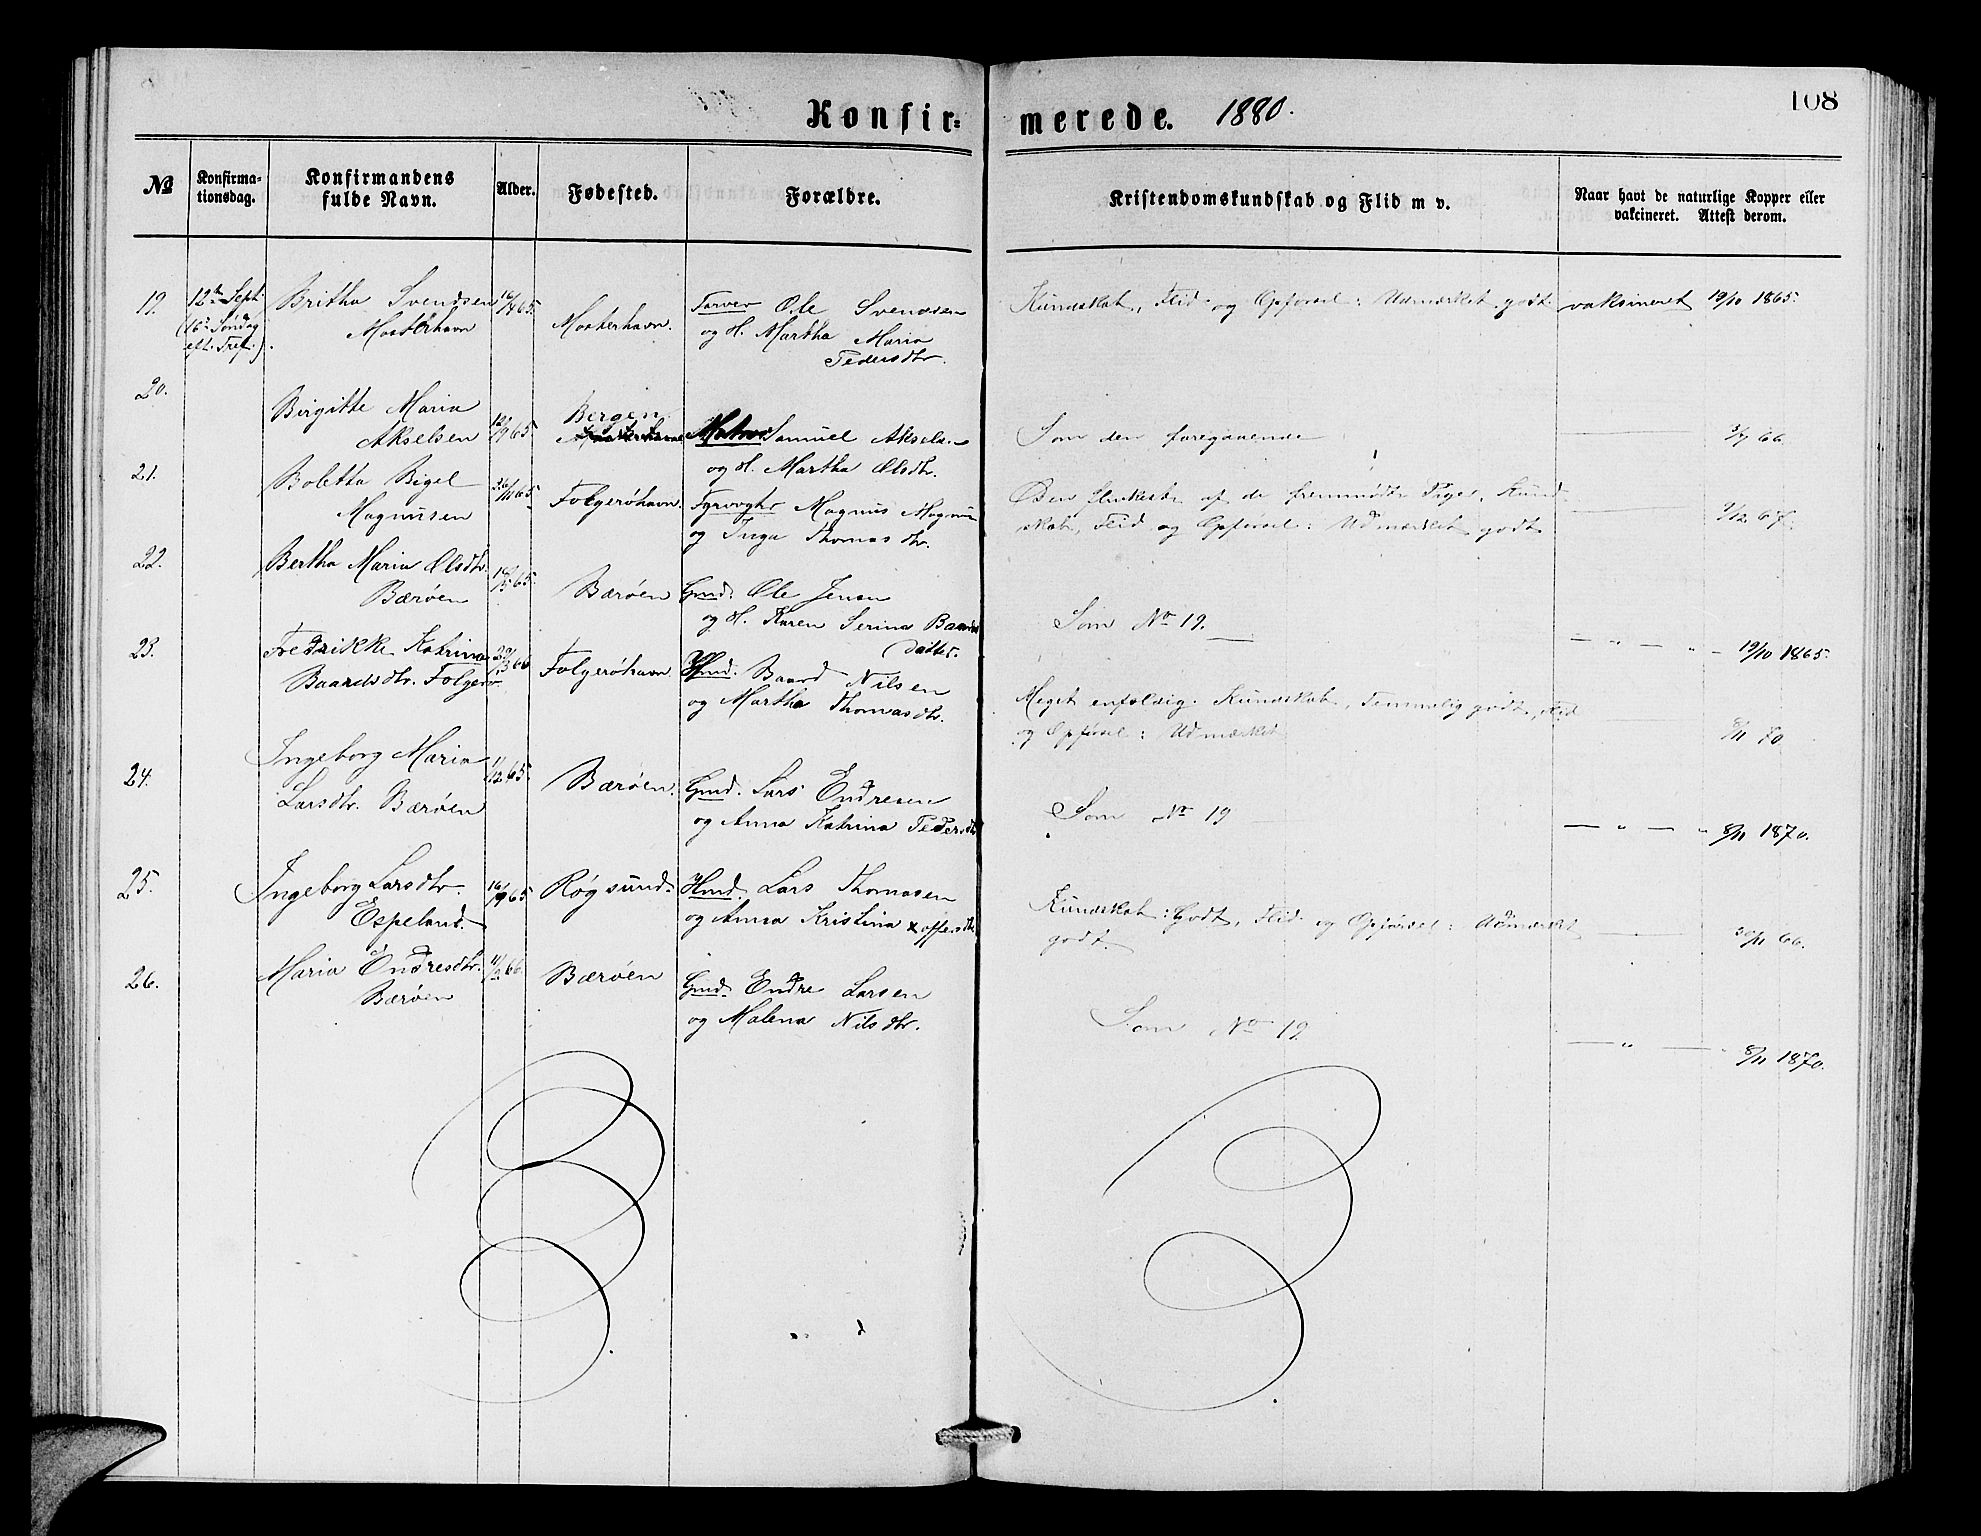 108
Konfir=merede. 1880.
No
Konfirma-
tionsdag.
Konfirmandens
fulde Navn.
Alder.
Fødested.
Forældre.
Kristendomskundskab og Flid m v.
Naar havt de naturlige Kopper eller
vakcineret. Attest derom.
19. 12te Sept. Britha Svendsen 65. Farver Ole Svendsen Kundskab, Flid og Opførsel: Udmærket godt. vaksineret 19/10 1865.
(16. Søndag Mosterhavn Mosterhavn. og H. Martha Maria
eft. Tref.). Pedersdtr.
20. Birgitte Maria Bergen
Akselsen 12/9 65. Samuel Akselsen Som den foregaaende 66.
og H. Martha Olsdtr.
21. Boletta Bigel
Magnusen 26/11 65 Folgerøhavn. Fyrvogter Magnus Magnus Den flinkeste af de fremmødte Piger, Kund-
og Inga Thomasdtr. skab, Flid og Opførsel: Udmærket godt 7/12 67.
22. Bertha Maria Olsdtr.
Bærøen 65. Bærøen Gmd. Ole Jensen
og H. Karen Serina Baards Som No 19. 19/10 1865.
datter.
23. Fredrikke Katrina
Baardsdtr. Folgerø 66 Folgerøhavn Hmd. Baard Nilsen Meget enfoldig. Kundskab, Temmelig godt, Flid
og Martha Thomasdtr. og Opførsel: Udmærket 8/11 70
24. Ingeborg Maria
Larsdtr. Bærøen 11/12 65. Bærøen. Gmd. Lars Endresen
og Anna Katrina Pedersdtr Som No 19 8/11 1870.
25. Ingeborg Larsdtr.
Espeland. 16/9 65 Røgsund. Hmd. Lars Thomasen Kundskab: Godt, Flid og Opførsel: Udmærket
og Anna Kristina godt. 30/11 66.
26. Maria Endresdtr.
Bærøen 11/2 66. Bærøen Gmd. Endre Larsen
og Malena Nilsdtr. Som No 19. 8/11 1870.